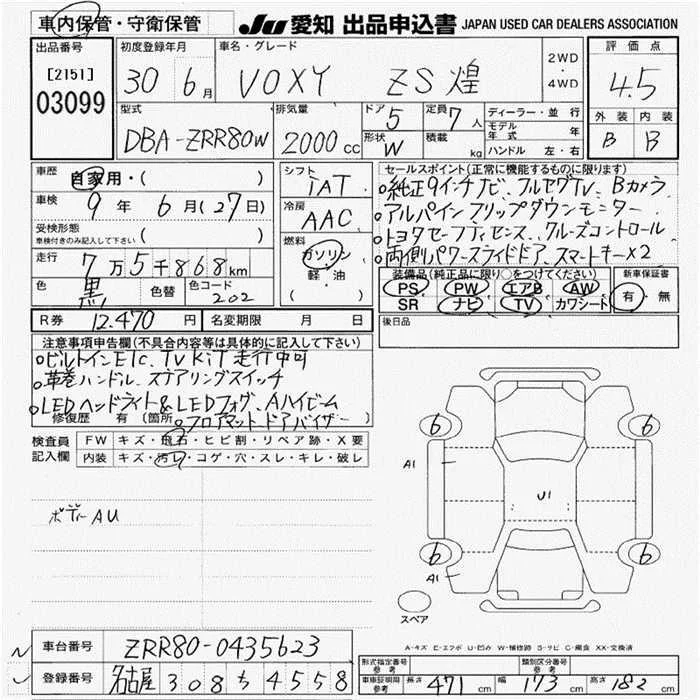 車内保管・守衛保管 JU 愛知 出品申込書 JAPAN USED CAR DEALERS ASSOCIATION
出品番号 初度登録年月 車名・グレード 2WD・4WD 評価点
[2151] 03099 30 6月 VOXY ZS煌 4.5
型式 排気量 ドア 5 定員 7人 ディーラー・並行 外装 内装
DBA-ZRR80W 2000cc 形状 W 積載 kg モデル年式 年 B B
ハンドル 左・右
車歴 自家用・( ) シフト IAT セールスポイント(正常に機能するものに限ります)
車検 9年6月(27日) 冷房 AAC 純正9インチナビ、フルセグTV、Bカメラ
アルパインフリップダウンモニター
受検形態 車検付きのみ記入して下さい ( ) 燃料 トヨタセーフティセンス、クルーズコントロール
走行 7万5千868km ガソリン 軽・油 ( ) 両側パワースライドドア、スマートキー×2
色 黒 色替 色コード 202 装備品(純正品に限り○をつけてください) 新車保証書
PS PW エアB AW 有・無
SR ナビ TV カワシート
R券 12.470円 名変期限 月 日 後日品
注意事項申告欄(不具合内容等は具体的に記入して下さい)
ビルトインETC、TVKIT走行中可
革巻ハンドル、ステアリングスイッチ
LEDヘッドライト&LEDフォグ、Aハイビーム
修復歴 有(箇所 フロアマット、ドアバイザー )
検査員記入欄 FW キズ・飛石・ヒビ割・リペア跡・X要
内装 キズ・汚レ・コゲ・穴・スレ・キレ・破レ
6 6
A1
U1
ボディーAU
6 6
A1
スペア
A-キズ E-エクボ U-凹み W-補修跡 S-サビ C-腐食 XX-交換済
車台番号 ZRR80-0435623 形式指定番号 参考 類別区分番号 参考
登録番号 名古屋 308 ち 4558 車車証明用参考 長さ 471cm 幅 173cm 高さ 182cm